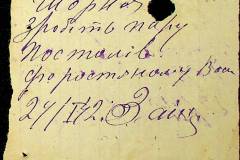 Шорник
Зробіть пару
постолів
форостяному Вол
24/IV 2. Заїц